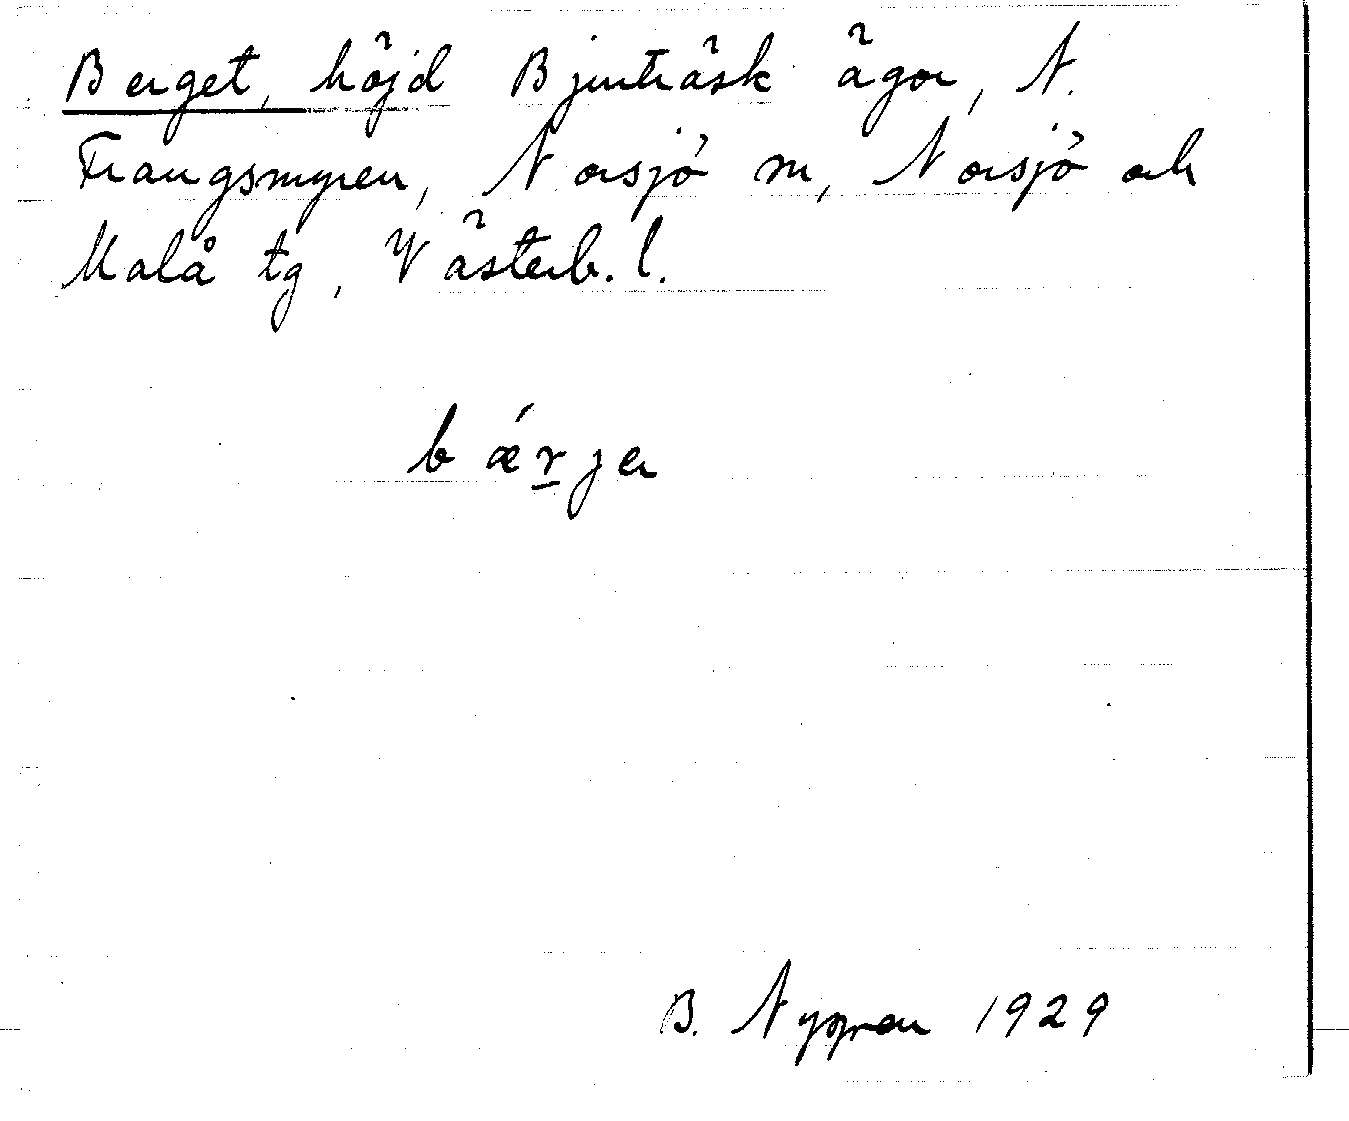 Berget, höjd Bjurträsk ägor, N.
Frangsmyren, Norsjö sn, Norsjö och
Malå tg, Västerb. l.
bǽrjer
B. Nygren 1929